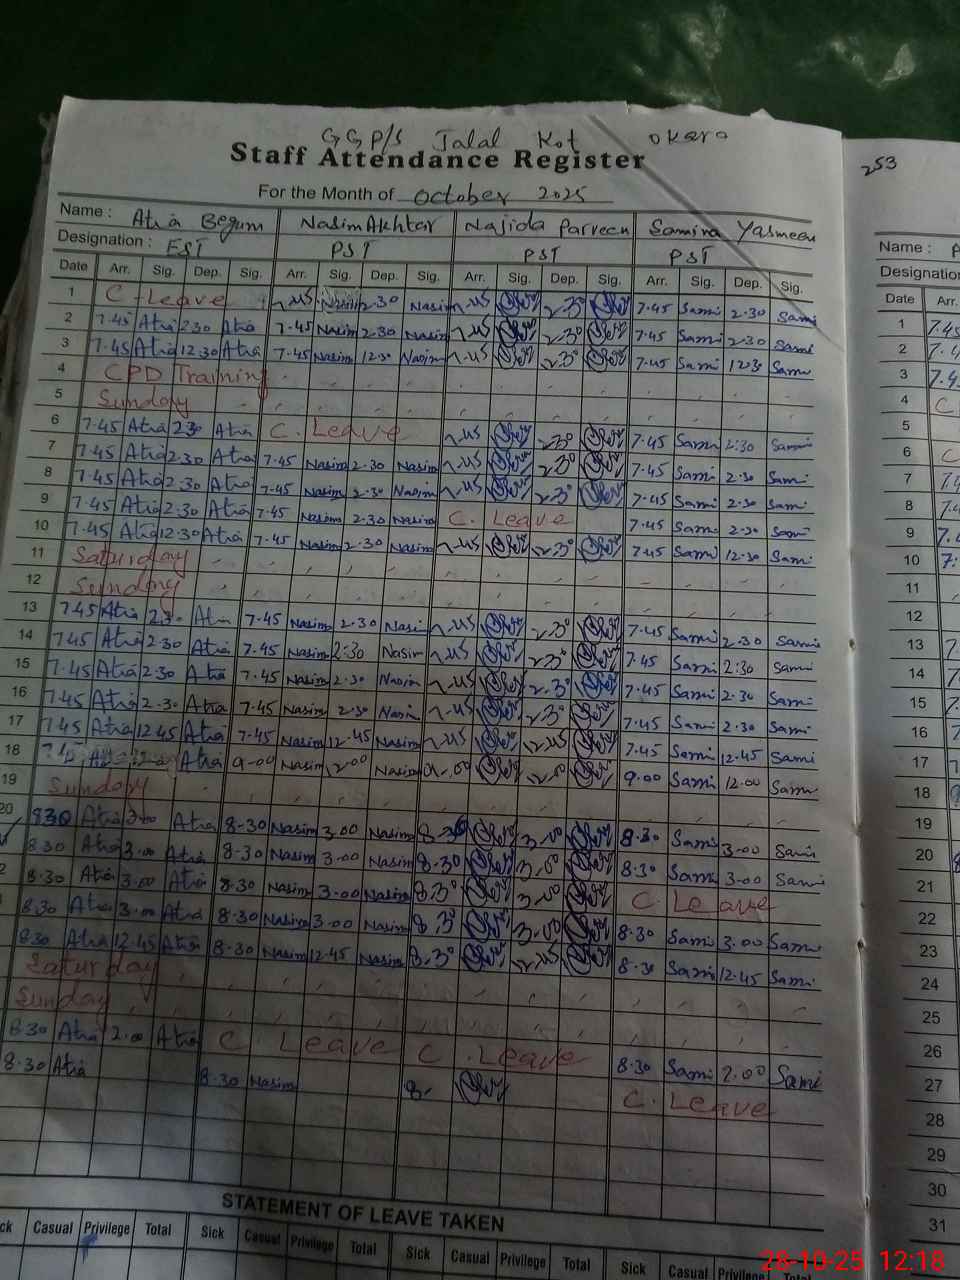 GGP/S Jalal Kot Okara
Staff Attendance Register
253
For the Month of October 2025
Name : Atia Begum Nasim Akhtar Najida Parveen Samina Yasmeen
Name :
Designation : EST PST PST PST
Designation
Date Arr. Sig. Dep. Sig. Arr. Sig. Dep. Sig. Arr. Sig. Dep. Sig. Arr. Sig. Dep. Sig.
Date Arr.
1 C. Leave 7.45 Nasim 2.30 Nasim 7.45 2.30 7.45 Sami 2.30 Sami
2 7.45 Atia 2.30 Atia 7.45 Nasim 2.30 Nasim 7.45 2.30 7.45 Sami 2.30 Sami
3 7.45 Atia 12.30 Atia 7.45 Nasim 12.30 Nasim 7.45 2.30 7.45 Sami 12.30 Sami
4 CPD Training
5 Sunday
6 7.45 Atia 2.30 Atia C. Leave 7.45 2.30 7.45 Sami 2:30 Sami
7 7.45 Atia 2.30 Atia 7.45 Nasim 2.30 Nasim 7.45 2.30 7.45 Sami 2.30 Sami
8 7.45 Atia 2.30 Atia 7.45 Nasim 2.30 Nasim 7.45 2.30 7.45 Sami 2.30 Sami
9 7.45 Atia 2.30 Atia 7.45 Nasim 2.30 Nasim C. Leave 7.45 Sami 2.30 Sami
10 7.45 Atia 12.30 Atia 7.45 Nasim 2.30 Nasim 7.45 2.30 7.45 Sami 12.30 Sami
11 Saturday
12 Sunday
13 7.45 Atia 2.30 Atia 7.45 Nasim 2.30 Nasim 7.45 2.30 7.45 Sami 2.30 Sami
14 7.45 Atia 2.30 Atia 7.45 Nasim 2:30 Nasim 7.45 2.30 7.45 Sami 2:30 Sami
15 7.45 Atia 2.30 Atia 7.45 Nasim 2.30 Nasim 7.45 2.30 7.45 Sami 2.30 Sami
16 7.45 Atia 2.30 Atia 7.45 Nasim 2.30 Nasim 7.45 2.30 7.45 Sami 2.30 Sami
17 7.45 Atia 12.45 Atia 7.45 Nasim 12.45 Nasim 7.45 12.45 7.45 Sami 12.45 Sami
18 Atia 9.00 Nasim 12.00 Nasim 9.00 12.00 9.00 Sami 12.00 Sami
19 Sunday
20 830 Atia 3.00 Atia 8.30 Nasim 3.00 Nasim 8.30 3.00 8.30 Sami 3.00 Sami
8.30 Atia 3.00 Atia 8.30 Nasim 3.00 Nasim 8.30 3.00 8.30 Sami 3.00 Sami
2 8.30 Atia 3.00 Atia 8.30 Nasim 3.00 Nasim 8.30 3.00 C. Leave
8.30 Atia 3.00 Atia 8.30 Nasim 3.00 Nasim 8.30 3.00 8.30 Sami 3.00 Sami
8.30 Atia 12.45 Atia 8.30 Nasim 12.45 Nasim 8.30 12.45 8.30 Sami 12.45 Sami
Saturday
Sunday
8.30 Atia 2.00 Atia C. Leave C. Leave 8.30 Sami 2.00 Sami
8.30 Atia 8.30 Nasim 8. C. Leave
1 7.45
2
3
4
5
6
7
8
9
10
11
12
13
14
15
16
17
18
19
20
21
22
23
24
25
26
27
28
29
30
31
STATEMENT OF LEAVE TAKEN
ck Casual Privilege Total Sick Casual Privilege Total Sick Casual Privilege Total Sick Casual Privilege Total
28-10-25 12:18